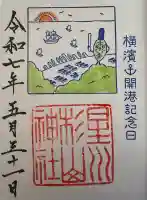 横濱⚓開港記念日
星川
杉山
神社
令和七年五月三十一日